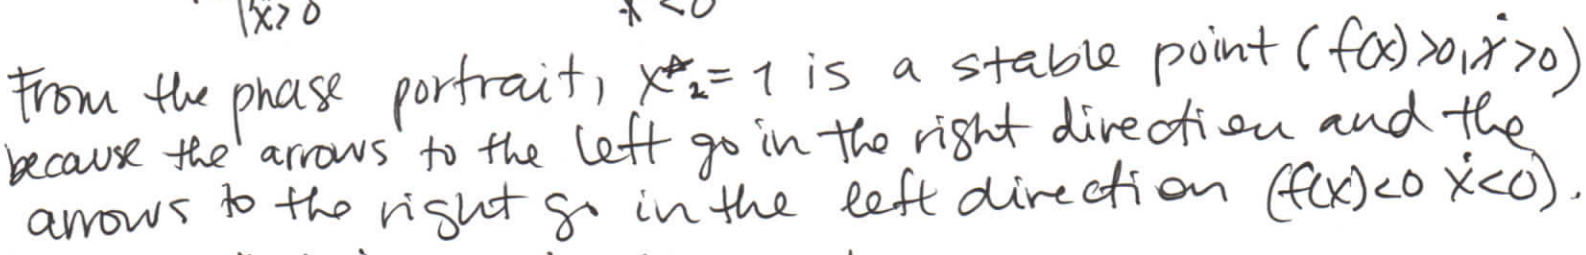 ẋ>0 ẋ<0
From the phase portrait, x*₂=1 is a stable point (f(x)>0, ẋ>0)
because the arrows to the left go in the right direction and the
arrows to the right go in the left direction (f(x)<0 ẋ<0).